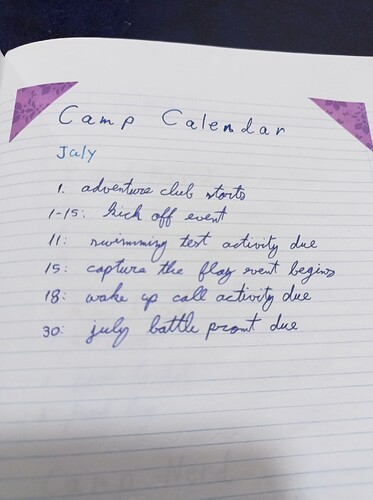 Camp Calendar
July
1. adventure club starts
1-15: kick off event
11: swimming test activity due
15: capture the flag event begins
18: wake up call activity due
30: july battle promt due